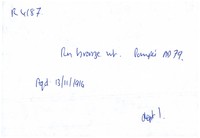 R 4187.
Rm bronze wt. Pompeii AD 79.
Aqd 13/11/1916
dept 1.